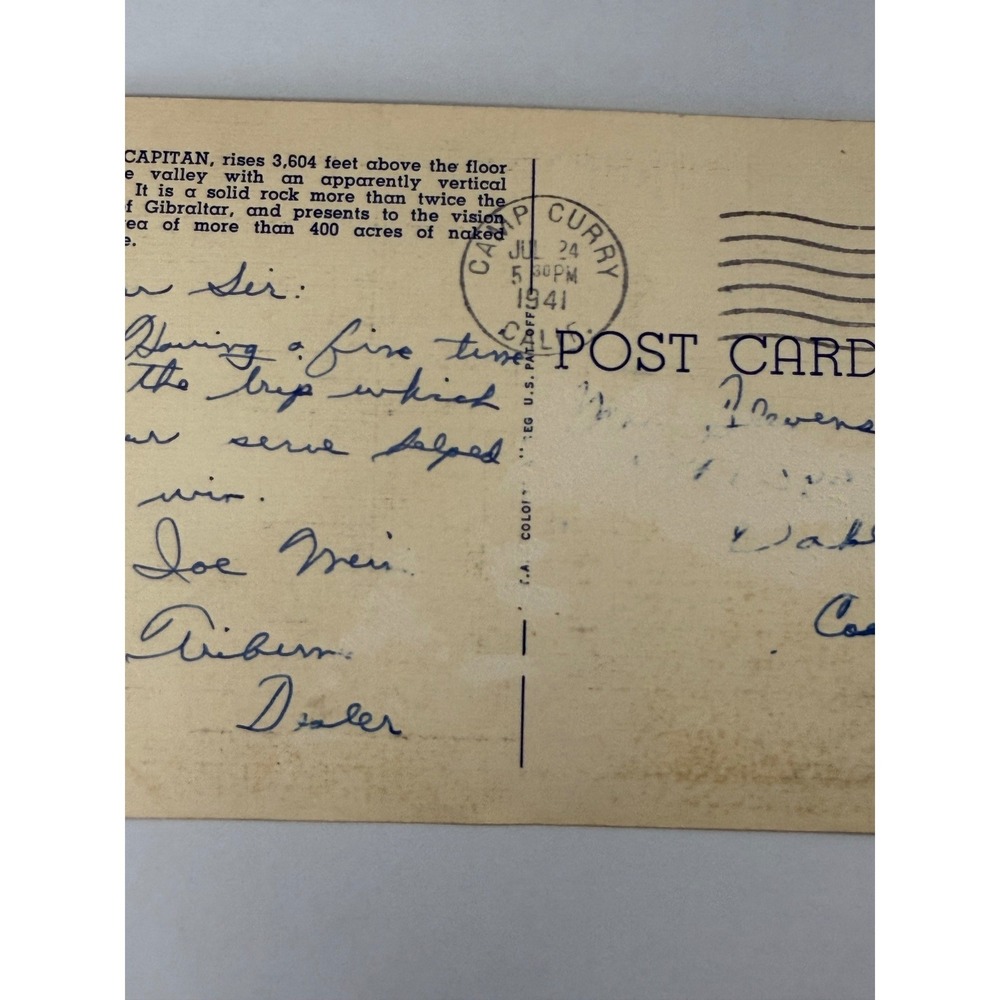 CAPITAN, rises 3,604 feet above the floor
e valley with an apparently vertical
It is a solid rock more than twice the
f Gibraltar, and presents to the vision
ea of more than 400 acres of naked
e.
CAMP CURRY
JUL 24
5 30 PM
1941
CALIF.
r Sir:
Having a fine time
the trip which
ur serve helped
win.
Joe
Dealer
POST CARD
REG U.S. PAT. OFF.
Stevens